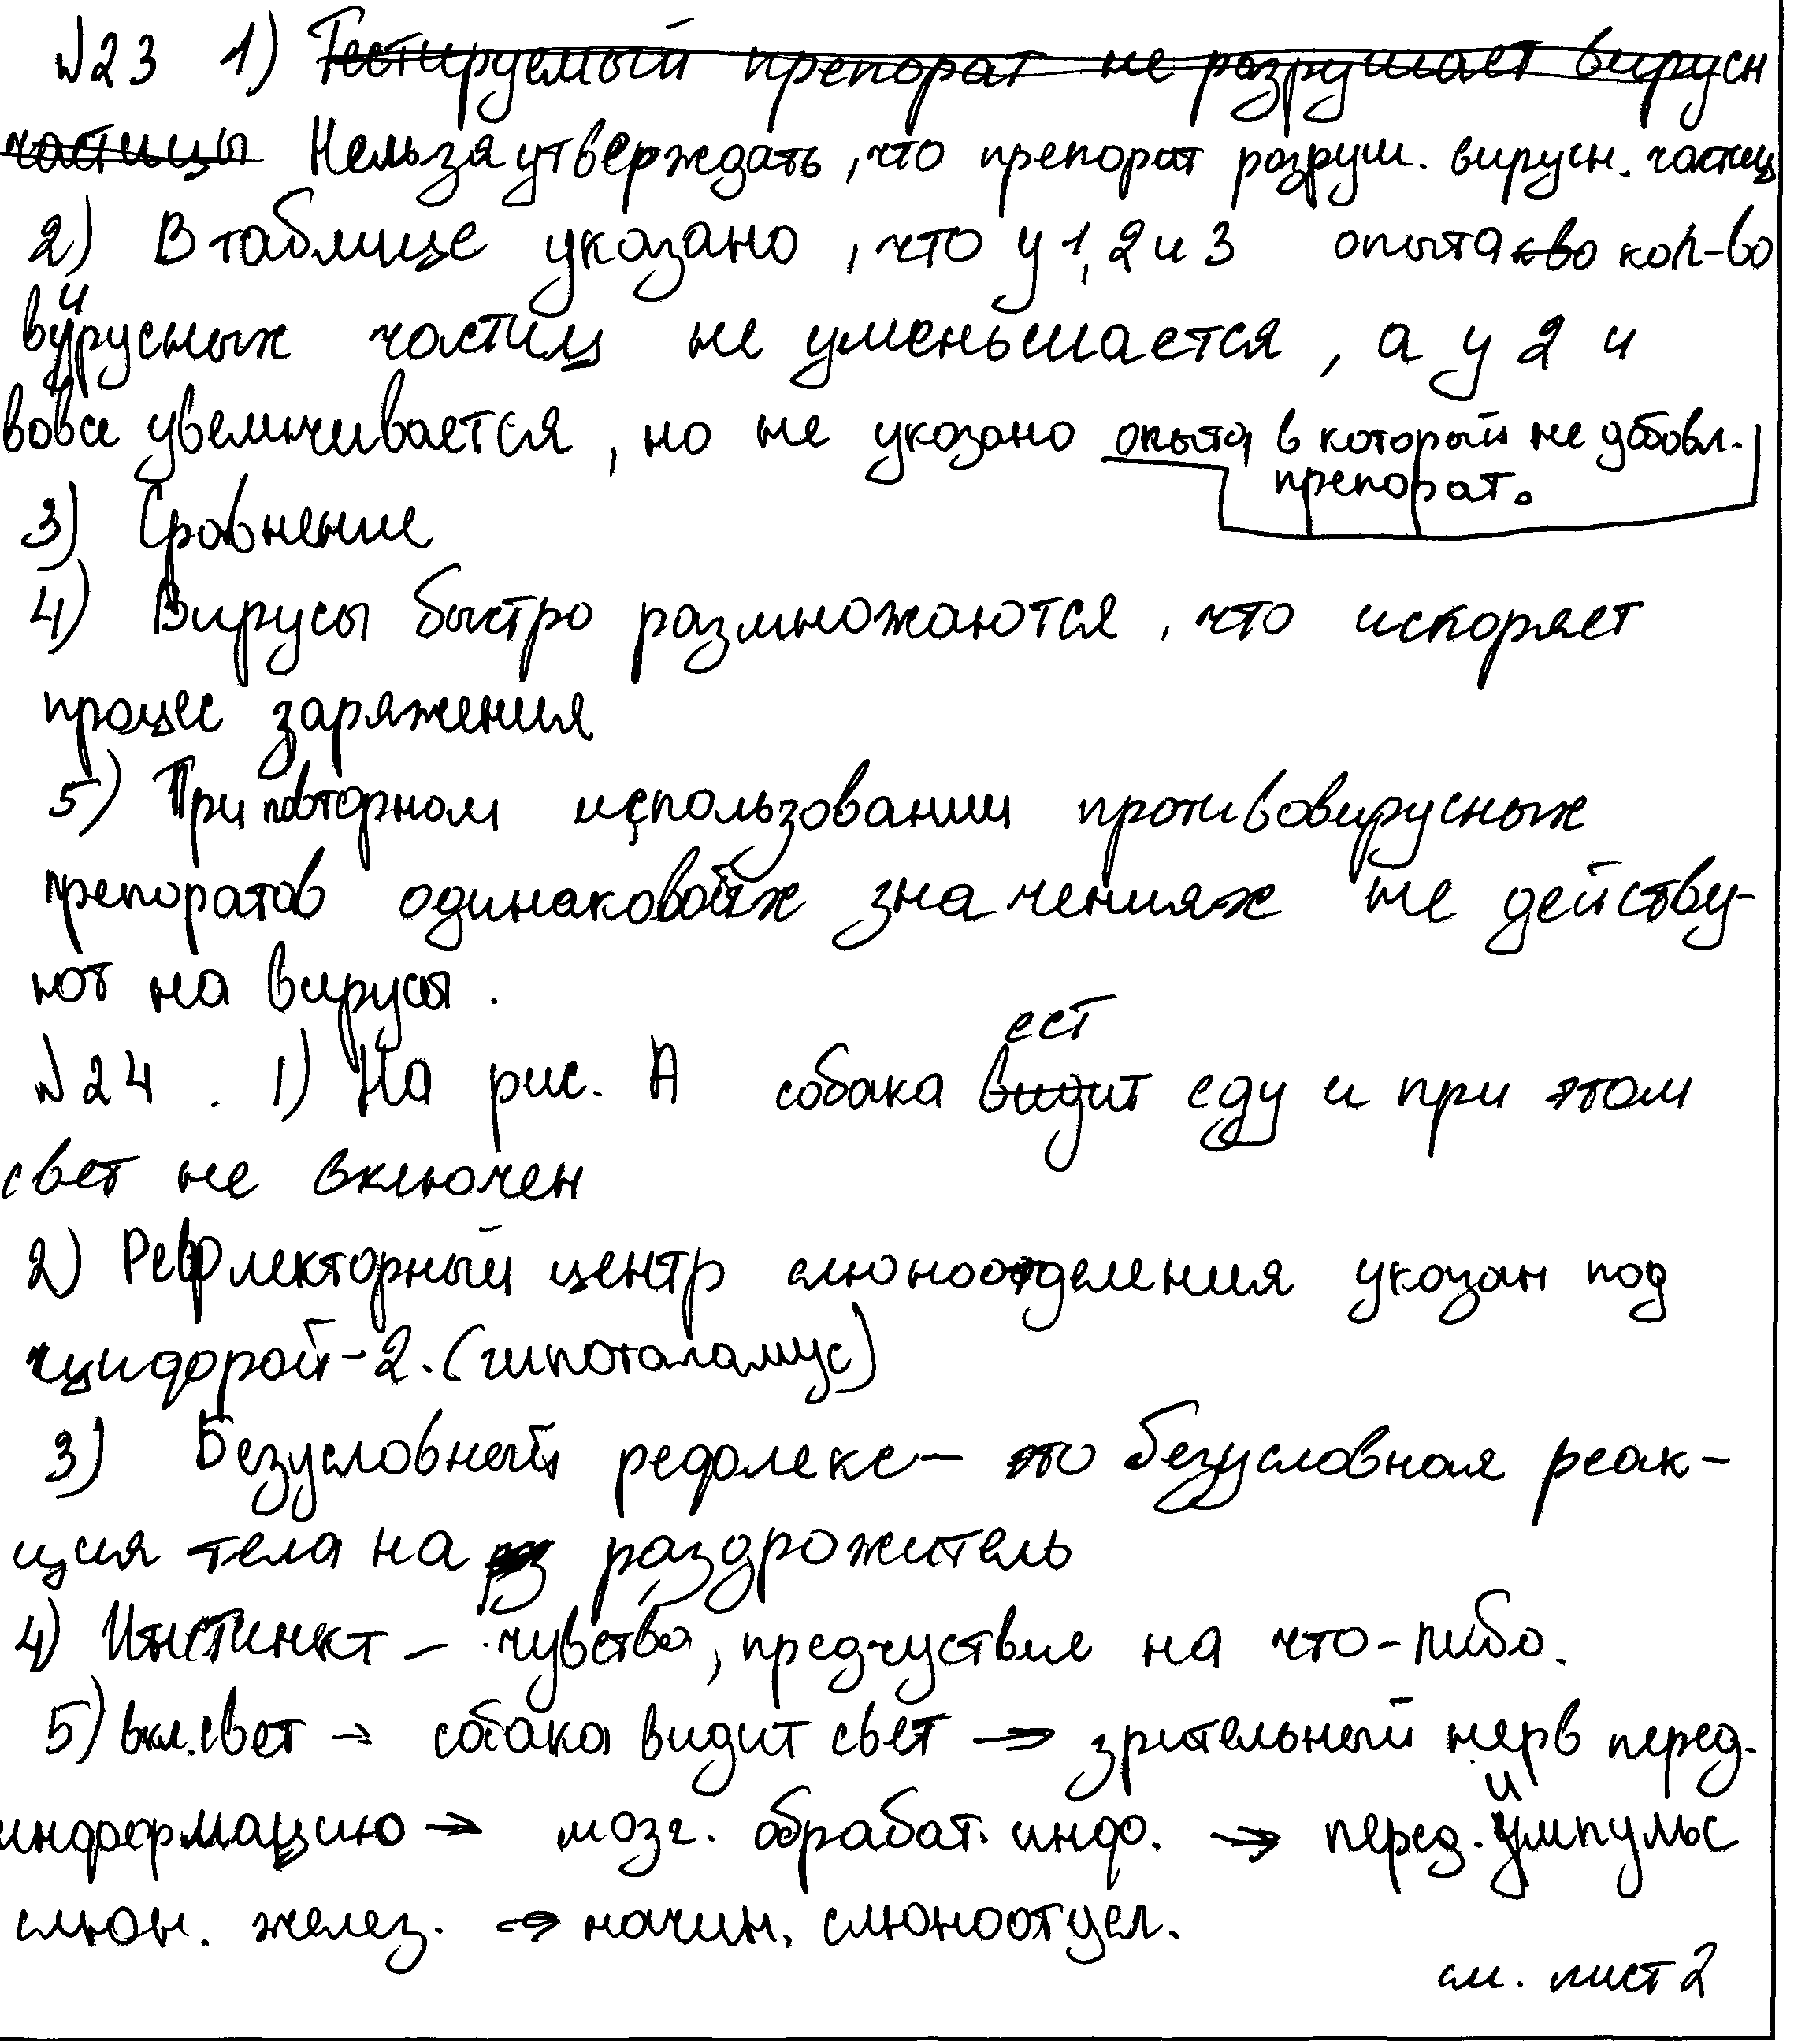 №23 1) Тестируемый препорат не разрушает вирусн
частицы Нельзя утверждать, что препорат разруш. вирусн. частиц
2) В таблице указано, что у 1, 2 и 3 опыта кво кол-во
вирусных частиц не уменьшается, а у 2 и
вовсе увеличивается, но не указано опыта в который не добовл.
препорат.
3) Сравнение
4) Вирусы быстро размножаются, что искоряет
процес заряжения
5) При повторном использовании противовирусных
препоратов одинаковых значениях не действу-
ют на вирусы.
ест
№24. 1) На рис. А собака видит еду и при этом
свет не включен
2) Рефлекторный центр слюноотделения указан под
цифорой-2. (гипоталамус)
3) Безусловный рефлекс – это безусловная реак-
ция тела на раздрожитель
4) Инстинкт – чувство, предчуствие на что-либо.
5) вкл. свет → собака видит свет → зрительный нерв перед.
информацию → мозг. обрабат. инф. → перед. импульс
слюн. желез. → начин. слюноотдел.
см. лист 2